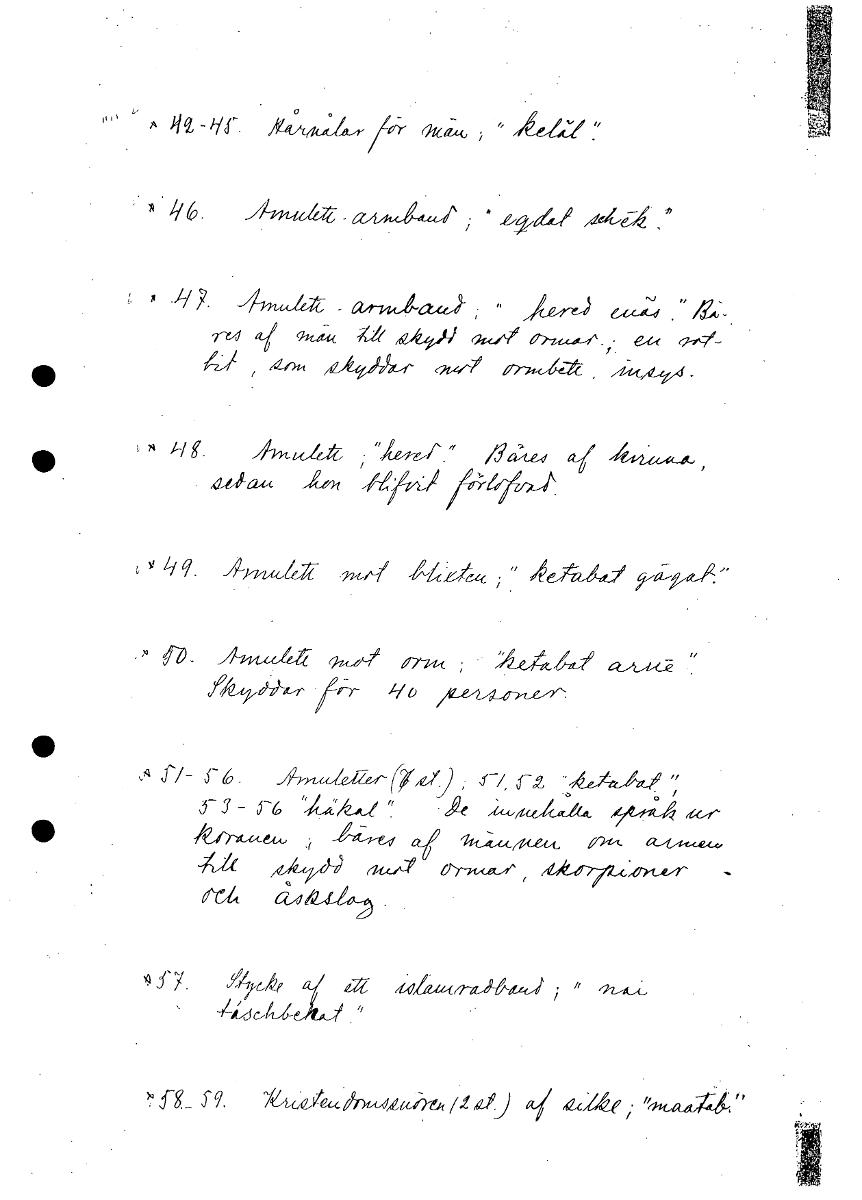 * 42-45. Hårnålar för män; "keläl".
* 46. Amulett-armband; "egdat schēk."
* 47. Amulett-armband; "hered enās." Bä-
res af män till skydd mot ormar; en rot-
bit, som skyddar mot ormbett, insys.
* 48. Amulett; "hered." Bäres af kvinna,
sedan hon blifvit förlofvad.
* 49. Amulett mot blixten; "ketabat gāgat."
* 50. Amulett mot orm; "ketabat aruē".
Skyddar för 40 personer.
* 51-56. Amuletter (6 st.); 51, 52 "ketabat",
53-56 "häkal". De innehålla språk ur
koranen; bäres af männen om armen
till skydd mot ormar, skorpioner
och åskslag.
* 57. Stycke af ett islamradband; "nai
táschbehat."
* 58-59. Kristendomssnören (2 st.) af silke; "maatab."